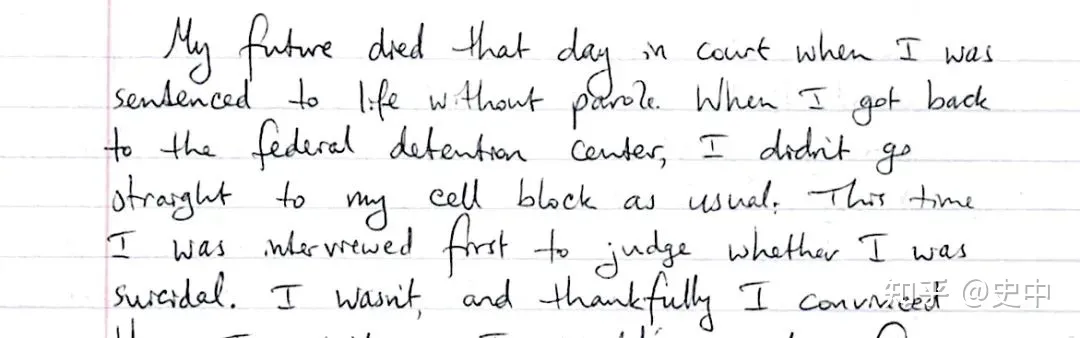 My future died that day in court when I was
sentenced to life without parole. When I got back
to the federal detention center, I didn't go
straight to my cell block as usual. This time
I was interviewed first to judge whether I was
suicidal. I wasn't, and thankfully I convinced
知乎 @史中